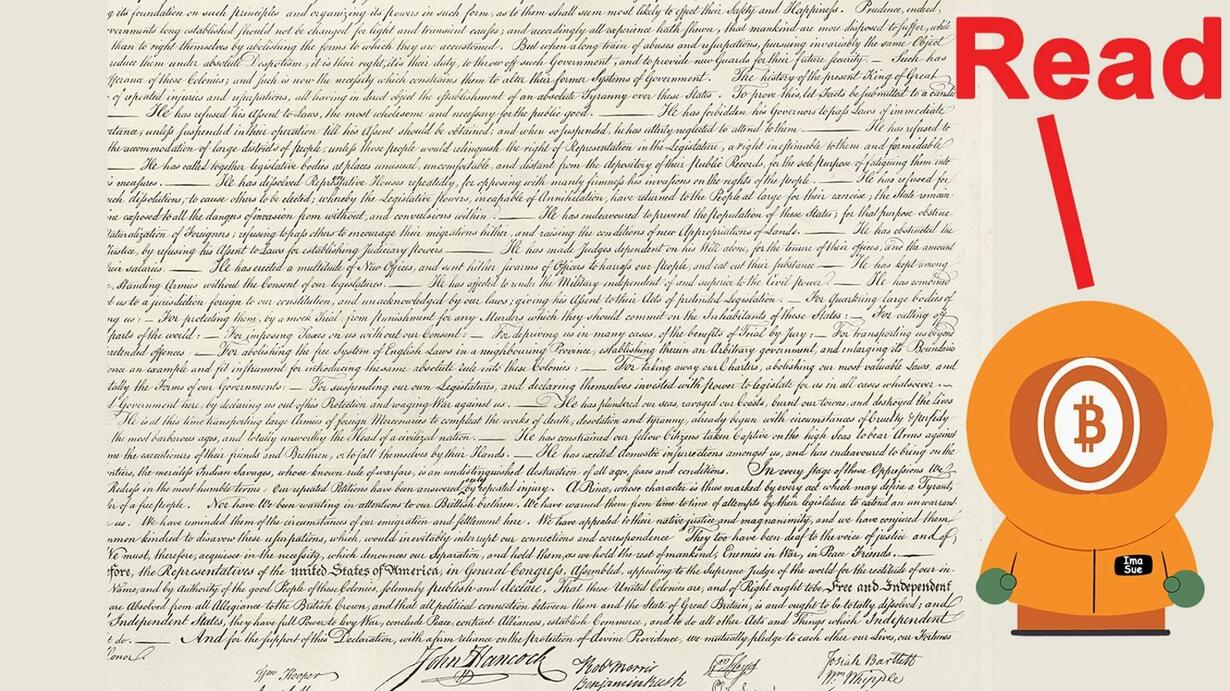 its foundation on such principles and organizing its powers in such form, as to them shall seem most likely to effect their Safety and Happiness. Prudence, indeed,
vernments long established should not be changed for light and transient causes; and accordingly all experience hath shewn, that mankind are more disposed to suffer, while
than to right themselves by abolishing the forms to which they are accustomed. But when a long train of abuses and usurpations, pursuing invariably the same Object
reduce them under absolute Despotism, it is their right, it is their duty, to throw off such Government, and to provide new Guards for their future security. — Such has
fferance of these Colonies; and such is now the necessity which constrains them to alter their former Systems of Government. The history of the present King of Great
of repeated injuries and usurpations, all having in direct object the establishment of an absolute Tyranny over these States. To prove this, let Facts be submitted to a candid
— He has refused his Assent to Laws, the most wholesome and necessary for the public good. — He has forbidden his Governors to pass Laws of immediate
rtance, unless suspended in their operation till his Assent should be obtained; and when so suspended, he has utterly neglected to attend to them. — He has refused to
the accommodation of large districts of people, unless those people would relinquish the right of Representation in the Legislature, a right inestimable to them and formidable
— He has called together legislative bodies at places unusual, uncomfortable, and distant from the depository of their public Records, for the sole purpose of fatiguing them into
s measures. — He has dissolved Representative Houses repeatedly, for opposing with manly firmness his invasions on the rights of the people. — He has refused for
uch dissolutions, to cause others to be elected; whereby the Legislative powers, incapable of Annihilation, have returned to the People at large for their exercise; the State remain
me exposed to all the dangers of invasion from without, and convulsions within. — He has endeavoured to prevent the population of these States; for that purpose obstruc
Naturalization of Foreigners; refusing to pass others to encourage their migrations hither, and raising the conditions of new Appropriations of Lands. — He has obstructed the
Justice, by refusing his Assent to Laws for establishing Judiciary powers. — He has made Judges dependent on his Will alone, for the tenure of their offices, and the amount
their salaries. — He has erected a multitude of New Offices, and sent hither swarms of Officers to harrass our People, and eat out their substance. — He has kept among
e, Standing Armies without the Consent of our legislatures. — He has affected to render the Military independent of and superior to the Civil power. — He has combined
ct us to a jurisdiction foreign to our constitution, and unacknowledged by our laws; giving his Assent to their Acts of pretended Legislation: — For Quartering large bodies of
ng us: — For protecting them, by a mock Trial, from punishment for any Murders which they should commit on the Inhabitants of these States: — For cutting off
parts of the world: — For imposing Taxes on us without our Consent: — For depriving us in many cases, of the benefits of Trial by Jury: — For transporting us beyond
retended offences: — For abolishing the free System of English Laws in a neighbouring Province, establishing therein an Arbitrary government, and enlarging its Boundaries
once an example and fit instrument for introducing the same absolute rule into these Colonies: — For taking away our Charters, abolishing our most valuable Laws, and
tally the Forms of our Governments: — For suspending our own Legislatures, and declaring themselves invested with power to legislate for us in all cases whatsoever. —
d Government here, by declaring us out of his Protection and waging War against us. — He has plundered our seas, ravaged our Coasts, burnt our towns, and destroyed the lives
He is at this time transporting large Armies of foreign Mercenaries to compleat the works of death, desolation and tyranny, already begun with circumstances of Cruelty & perfidy
the most barbarous ages, and totally unworthy the Head of a civilized nation. — He has constrained our fellow Citizens taken Captive on the high Seas to bear Arms against
me the executioners of their friends and Brethren, or to fall themselves by their Hands. — He has excited domestic insurrections amongst us, and has endeavoured to bring on the
ontiers, the merciless Indian Savages, whose known rule of warfare, is an undistinguished destruction of all ages, sexes and conditions. In every stage of these Oppressions We
Redress in the most humble terms: Our repeated Petitions have been answered only by repeated injury. A Prince, whose character is thus marked by every act which may define a Tyrant,
ler of a free people. Nor have We been wanting in attentions to our Brittish brethren. We have warned them from time to time of attempts by their legislature to extend an unwarrant
us. We have reminded them of the circumstances of our emigration and settlement here. We have appealed to their native justice and magnanimity, and we have conjured them
mmon kindred to disavow these usurpations, which, would inevitably interrupt our connections and correspondence They too have been deaf to the voice of justice and of
We must, therefore, acquiesce in the necessity, which denounces our Separation, and hold them, as we hold the rest of mankind, Enemies in War, in Peace Friends. —
fore, the Representatives of the united States of America, in General Congress, Assembled, appealing to the Supreme Judge of the world for the rectitude of our in-
Name, and by Authority of the good People of these Colonies, solemnly publish and declare, That these United Colonies are, and of Right ought to be Free and Independent
are Absolved from all Allegiance to the British Crown, and that all political connection between them and the State of Great Britain, is and ought to be totally dissolved; and
Independent States, they have full Power to levy War, conclude Peace, contract Alliances, establish Commerce, and to do all other Acts and Things which Independent
t do. — And for the support of this Declaration, with a firm reliance on the protection of divine Providence, we mutually pledge to each other our Lives, our Fortunes
Honor.
Wm Hooper
John Hancock
Robt Morris
Benjamin Rush
Josiah Bartlett
Wm Whipple
Read
₿
Ima
Sue